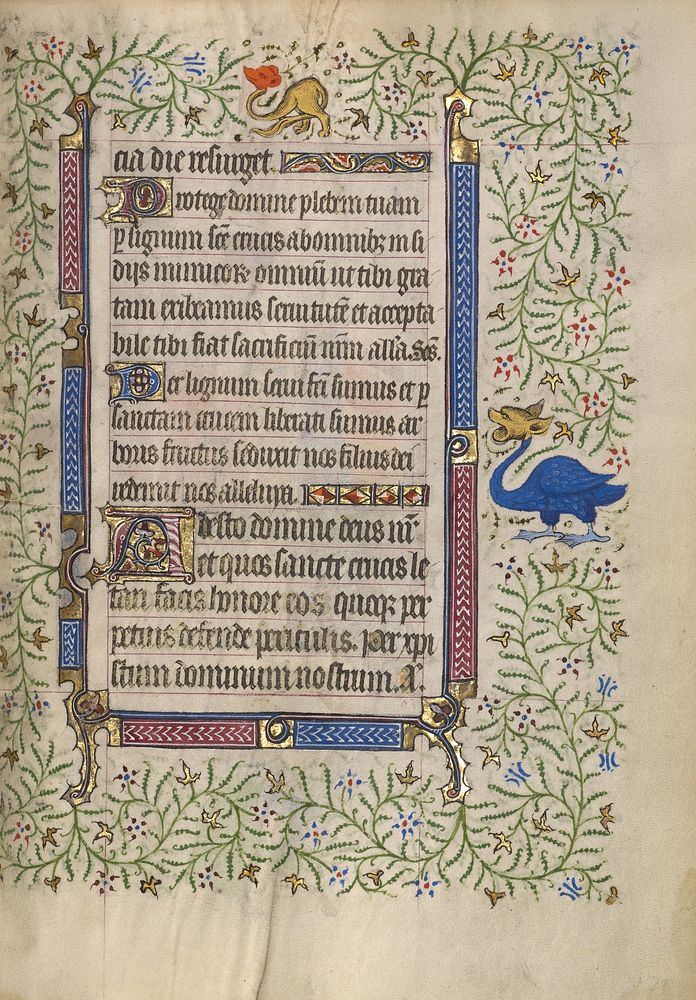 cia die resurget.
Protege domine plebem tuam
p lignum sce crucis ab omnibz insi
diis inimicor omniū ut tibi gra
tam exibeamus seruitutē et accepta
bile tibi fiat sacrificiū nrm alla.
Per lignum serui fcti sumus et p
sanctam crucem liberati sumus ar
boris fructus seduxit nos filius dei
redemit nos alleluya.
Adesto domine deus nr
et quos sancte crucis le
tari facis honore eos quoqz per
petuis defende periculis. per xpi
stum dominum nostrum. A.